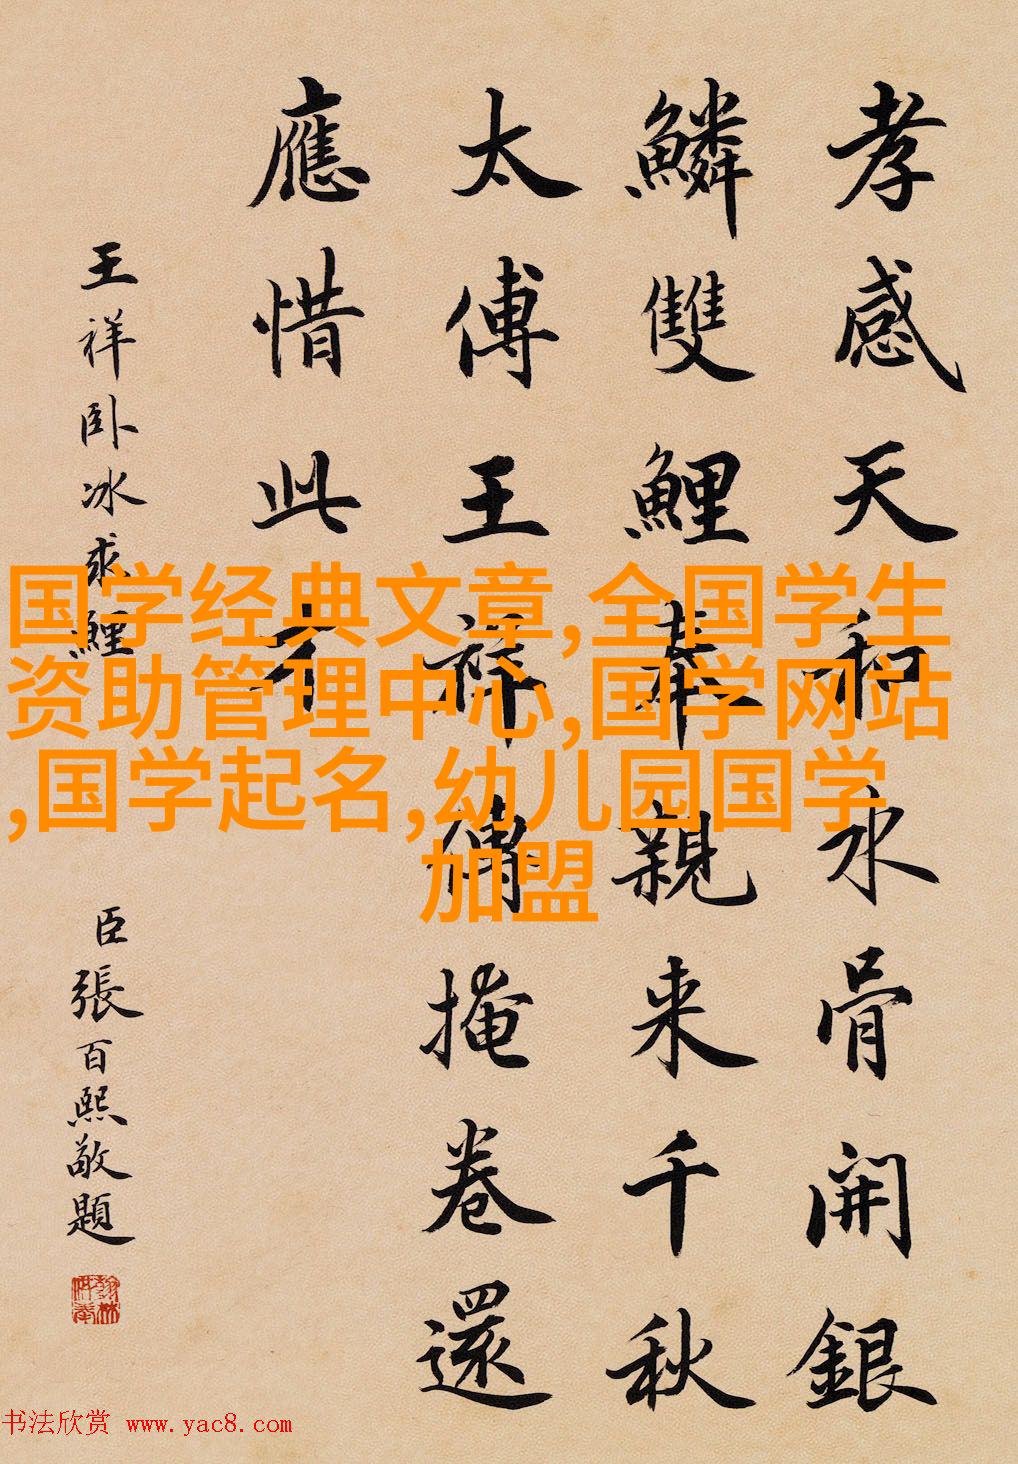 孝感天和水骨開銀
鱗雙鯉奉親来千秋
太傅王祥傳掩卷還
應惜此才
王祥卧冰求鯉
臣張百熙敬題
翰林供奉
国学经典文章,全国学生
资助管理中心,国学网站
,国学起名,幼儿园国学
加盟
书法欣赏 www.yac8.com